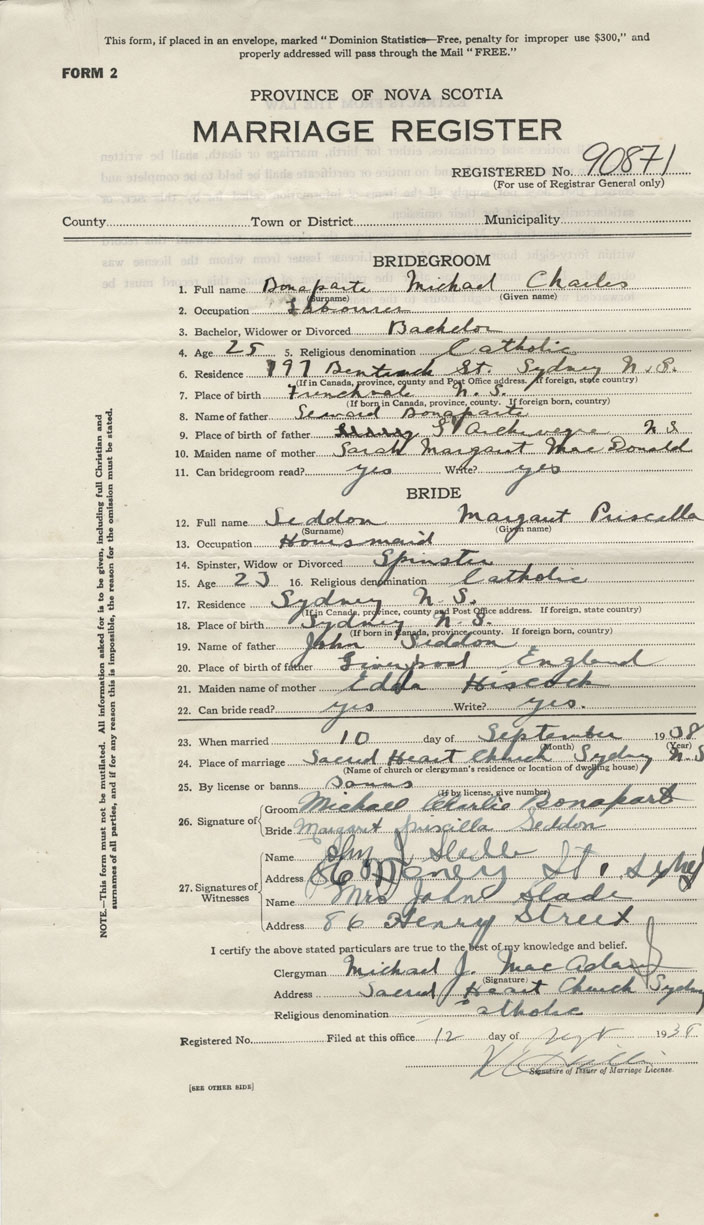 This form, if placed in an envelope, marked "Dominion Statistics—Free, penalty for improper use $300," and
properly addressed will pass through the Mail "FREE."
FORM 2
PROVINCE OF NOVA SCOTIA
MARRIAGE REGISTER
REGISTERED No. 90871
(For use of Registrar General only)
County Town or District Municipality
BRIDEGROOM
1. Full name Bonaparte Michael Charles
(Surname) (Given name)
2. Occupation Labourer
3. Bachelor, Widower or Divorced Bachelor
4. Age 25 5. Religious denomination Catholic
6. Residence 197 St. Sydney N.S.
(If in Canada, province, county and Post Office address. If foreign, state country)
7. Place of birth Frenchvale N.S.
(If born in Canada, province, county. If foreign born, country)
8. Name of father Bonaparte
9. Place of birth of father N S
10. Maiden name of mother Sarah Margaret Mac Donald
11. Can bridegroom read? yes Write? yes
BRIDE
12. Full name Seddon Margaret Priscilla
(Surname) (Given name)
13. Occupation Housmaid
14. Spinster, Widow or Divorced Spinster
15. Age 23 16. Religious denomination Catholic
17. Residence Sydney N.S.
(If in Canada, province, county and Post Office address. If foreign, state country)
18. Place of birth Sydney N.S.
(If born in Canada, province, county. If foreign born, country)
19. Name of father John Seddon
20. Place of birth of father Liverpool England
21. Maiden name of mother Edda Hiscock
22. Can bride read? yes Write? yes.
23. When married 10 day of September 1938
(Month) (Year)
24. Place of marriage Sacred Heart Church Sydney N.S
(Name of church or clergyman's residence or location of dwelling house)
25. By license or banns Banns
(If by license, give number)
26. Signature of Groom Michael Charlie Bonapart
Bride Margaret Priscilla Seddon
27. Signatures of Witnesses
Name John J Slade
Address 86 Henery St, Sydney
Name Mrs John Slade
Address 86 Henry Street
I certify the above stated particulars are true to the best of my knowledge and belief.
Clergyman Michael J. Mac Adam
(Signature)
Address Sacred Heart Church Sydney
Religious denomination Catholic
Registered No. Filed at this office 12 day of Sept 1938
Signature of Issuer of Marriage License.
[SEE OTHER SIDE]
NOTE.—This form must not be mutilated. All information asked for is to be given, including full Christian and
surnames of all parties, and if for any reason this is impossible, the reason for the omission must be stated.